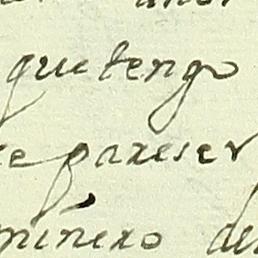 que tengo
pareser
miñero de